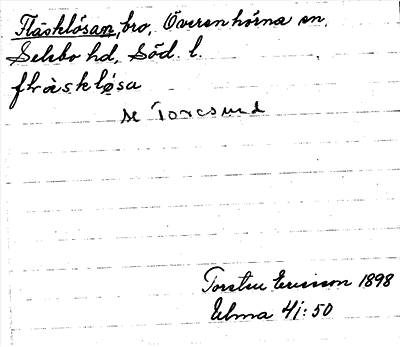 Fläsklösan, bro, Överenhörna sn,
Selebo hd, Söd. l.
flàsklǿsa
se Toresund
Torsten Ericsson 1898
Ulma 41:50